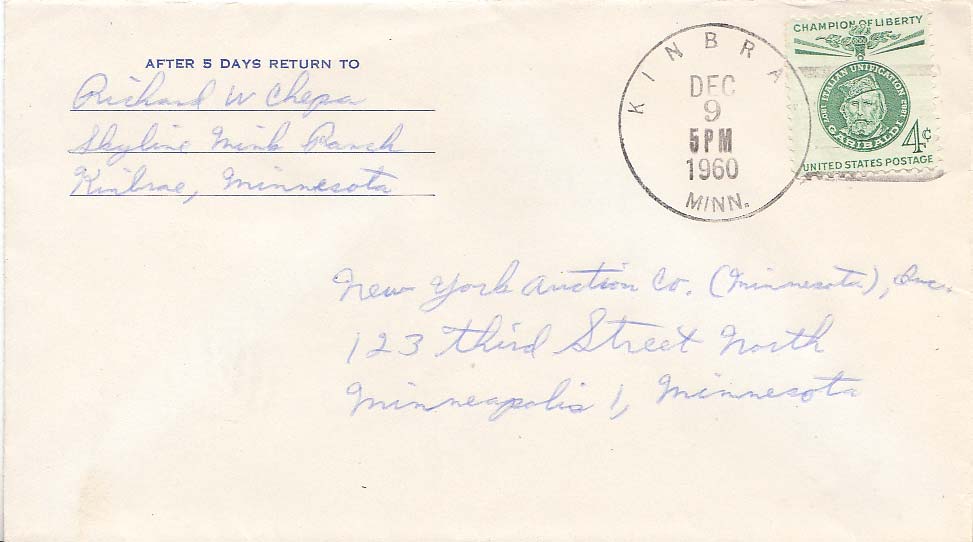 AFTER 5 DAYS RETURN TO
Richard W Chepa
Skyline Mink Ranch
Kinbrae, Minnesota
KINBRA
DEC
9
5PM
1960
MINN.
CHAMPION OF LIBERTY
1807 ITALIAN UNIFICATION 1882
GARIBALDI
4¢
UNITED STATES POSTAGE
New York Auction Co. (Minnesota), Inc.
123 third Street North
Minneapolis 1, Minnesota